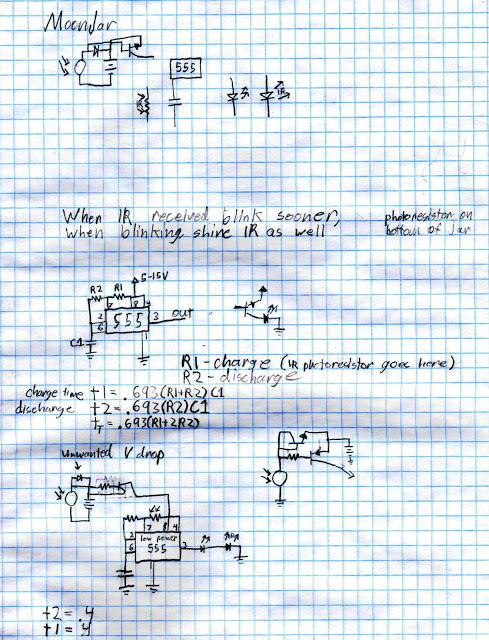 MoonJar
555
IR
When IR received blink sooner,
when blinking shine IR as well
photoresistor on
bottom of Jar
5-15V
R2 R1
7 8 4
2
6
555
3 out
C1
R1-charge (IR photoresistor goes here)
R2-discharge
charge time t1=.693(R1+R2)C1
discharge t2=.693(R2)C1
tT=.693(R1+2R2)
unwanted V drop
7 8 4
2
6
low power
555
3
t2=.4
t1=4